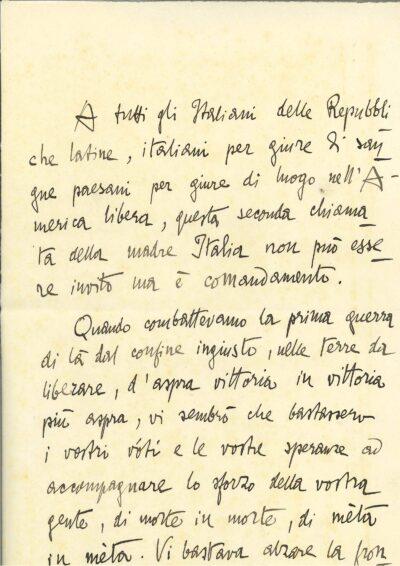 A tutti gli Italiani delle Repubbli
che latine, italiani per giure di san
gue paesani per giure di luogo nell'A-
merica libera, questa seconda chiama
ta della madre Italia non può esse
re invito ma è comandamento.
Quando combattevamo la prima guerra
di là dal confine ingiusto, nelle terre da
liberare, d'aspra vittoria in vittoria
più aspra, vi sembrò che bastassero
i vostri vóti e le vostre speranze ad
accompagnare lo sforzo della vostra
gente, di morte in morte, di mèta
in mèta. Vi bastava alzare la fron